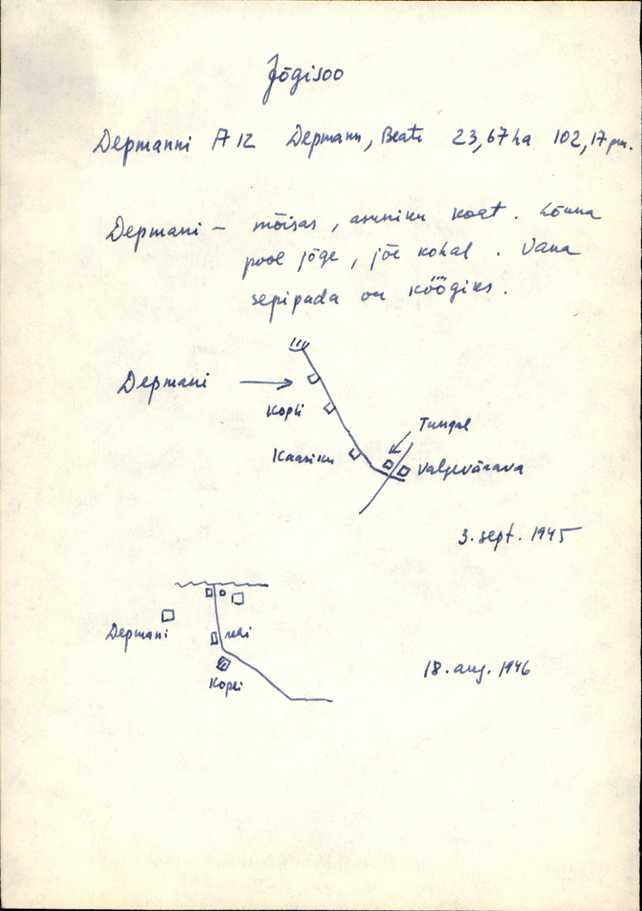 Jõgisoo
Depmanni A 12 Depmann, Beate 23,67 ha 102,17 pm.
Depmani – mõisas, asuniku koat. Lõuna
pool jõge, jõe kohal. Vana
sepipada on köögiks.
Depmani
Kopli
Tungal
Kaasiku
Valjevärava
3. sept. 1945
Depmani
rehi
Kopli
18. aug. 1946